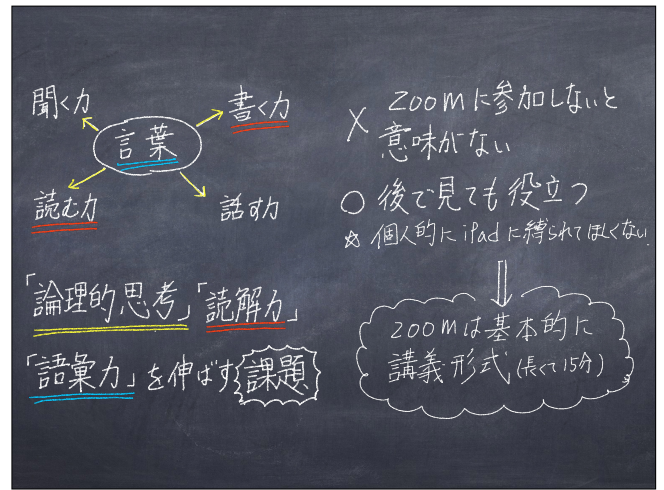 聞く力
書く力
言葉
読む力
話す力
「論理的思考」「読解力」
「語彙力」を伸ばす課題
× zoomに参加しないと
意味がない
○ 後で見ても役立つ
☆ 個人的にiPadに縛られてほしくない
zoomは基本的に
講義形式(長くて15分)